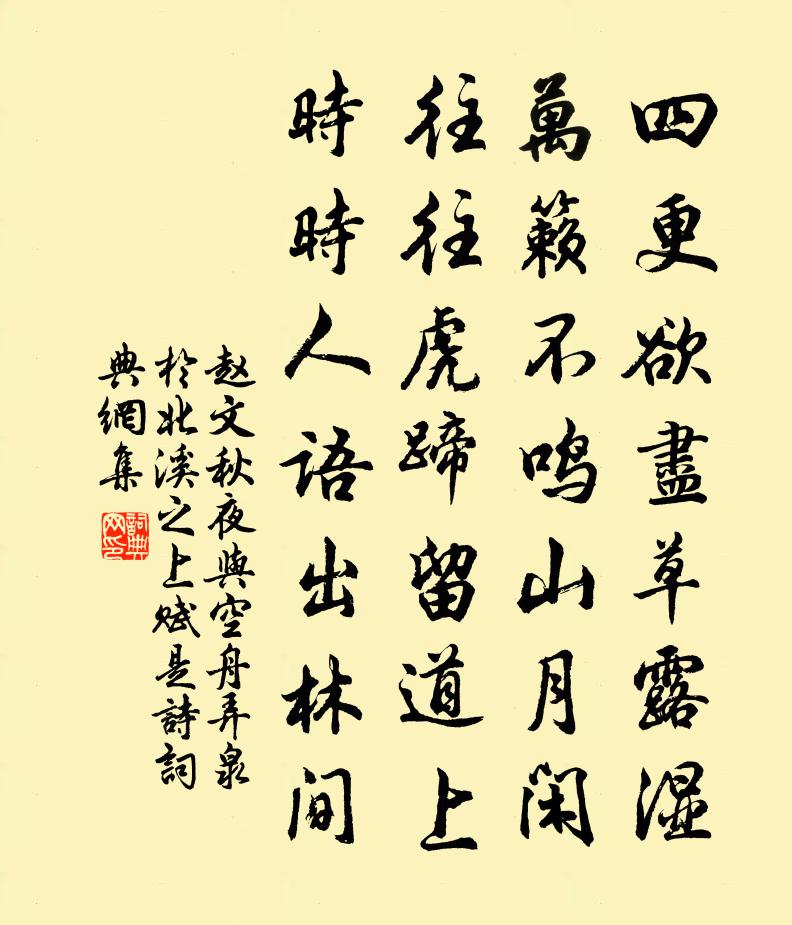 四更欲盡草露濕
萬籟不鳴山月閑
往往虎蹄留道上
時時人語出林間
赵文秋夜與空舟弄泉
於北溪之上賦是詩詞
典網集
詞典網印